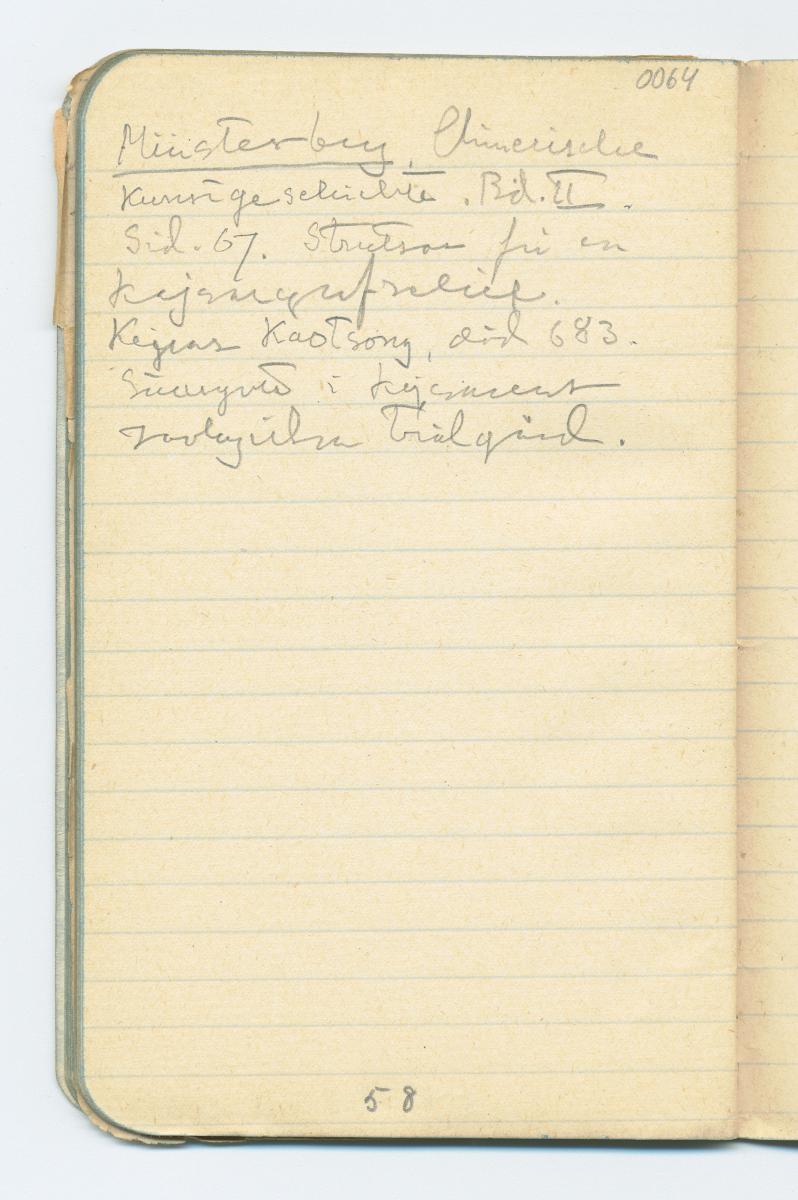 0064
Münsterberg, Chinesische
Kunstgeschichte. Bd. II.
Sid. 67. Strutsar för en
kejsargrafrelief.
Kejsar Kaotsong, död 683.
i kejsarens
zoologiska trädgård.
58